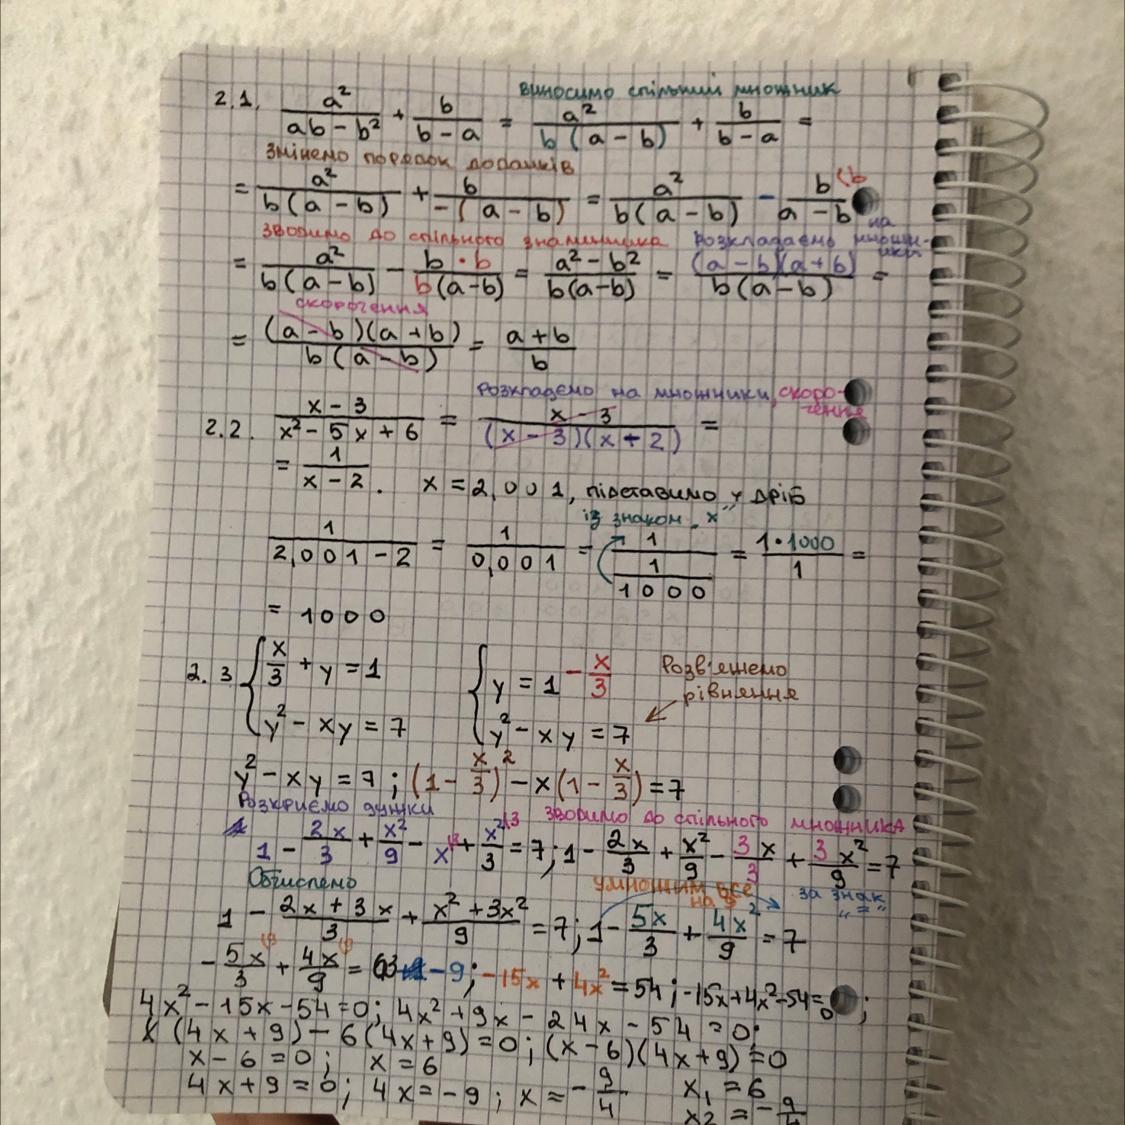 виносимо спільний множник
2.1. a²/(ab - b²) + b/(b - a) = a²/(b(a - b)) + b/(b - a) =
змінемо порядок доданків
= a²/(b(a - b)) + b/(-(a - b)) = a²/(b(a - b)) - b/(a - b) (b
зводимо до спільного знаменника Розкладаємо на множники
= a²/(b(a - b)) - (b · b)/(b(a - b)) = (a² - b²)/(b(a - b)) = ((a - b)(a + b))/(b(a - b)) =
скорочення
= ((a - b)(a + b))/(b(a - b)) = (a + b)/b
Розкладемо на множники, скоро-
чення
2.2. (x - 3)/(x² - 5x + 6) = (x - 3)/((x - 3)(x + 2)) =
= 1/(x - 2). x = 2,001, підставимо у дріб
із знаком „x"
1/(2,001 - 2) = 1/0,001 = 1/(1/1000) = (1 · 1000)/1 =
= 1000
2.3 { x/3 + y = 1 { y = 1 - x/3 Розв'яжемо
рівняння
y² - xy = 7 y² - xy = 7
y² - xy = 7 ; (1 - x/3)² - x(1 - x/3) = 7
Розкриємо дужки зводимо до спільного множника
1 - 2x/3 + x²/9 - x|3 + x²/3|3 = 7 ; 1 - 2x/3 + x²/9 - 3x/3 + 3x²/9 = 7
Обчислемо умножим все на 9 за знак „="
1 - (2x + 3x)/3 + (x² + 3x²)/9 = 7 ; 1 - 5x/3 + 4x²/9 = 7
- 5x/3 + 4x/9 = 63 - 9 ; -15x + 4x² = 54 ; -15x + 4x² - 54 = 0 ;
4x² - 15x - 54 = 0 ; 4x² + 9x - 24x - 54 = 0 ;
x(4x + 9) - 6(4x + 9) = 0 ; (x - 6)(4x + 9) = 0
x - 6 = 0 ; x = 6
4x + 9 = 0 ; 4x = -9 ; x = -9/4 x₁ = 6
x₂ = -9/4